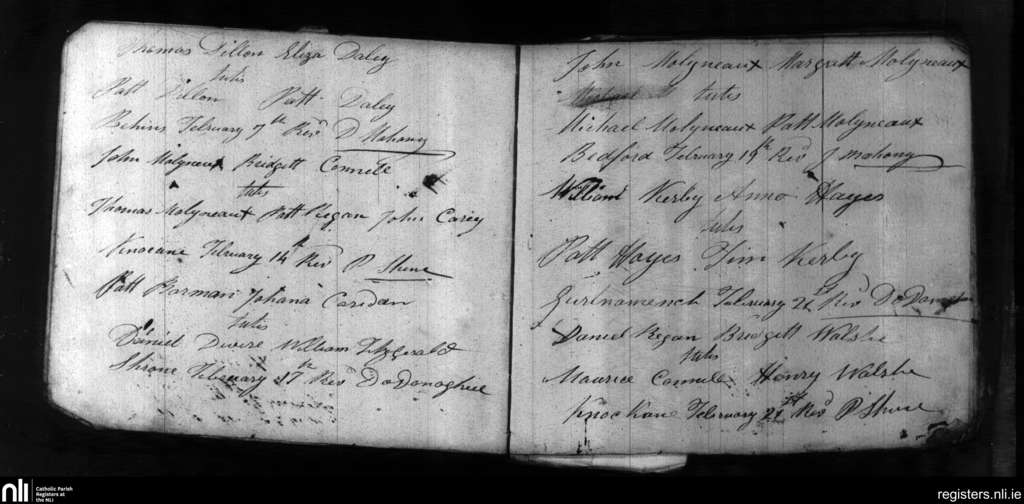 Thomas Dillon Eliza Daley
tutis
Patt Dillon Patt Daley
Behins February 7th Revd D Mahony
John Molyneux Bridgett Connell
tutis
Thomas Molyneaux Patt Regan John Carey
Knocane February 14th Revd P Shene
Patt Borman Johana Caridan
tutis
Daniel Dwire William Fitzgerald
Shrone February 17th Revd D oDonaghue
John Molyneaux Margratt Molyneaux
Michael M tutis
Michael Molyneaux Patt Molyneaux
Bedford February 19th Revd J Mahony
William Kerby Anno Hayes
tutis
Patt Hayes Tim Kerby
February 21st Revd D
Daniel Regan Bridgett Walshe
tutis
Maurice Connell Henry Walshe
Knockane February 21st Revd P Shene
nli
Catholic Parish
Registers at
the NLI
registers.nli.ie